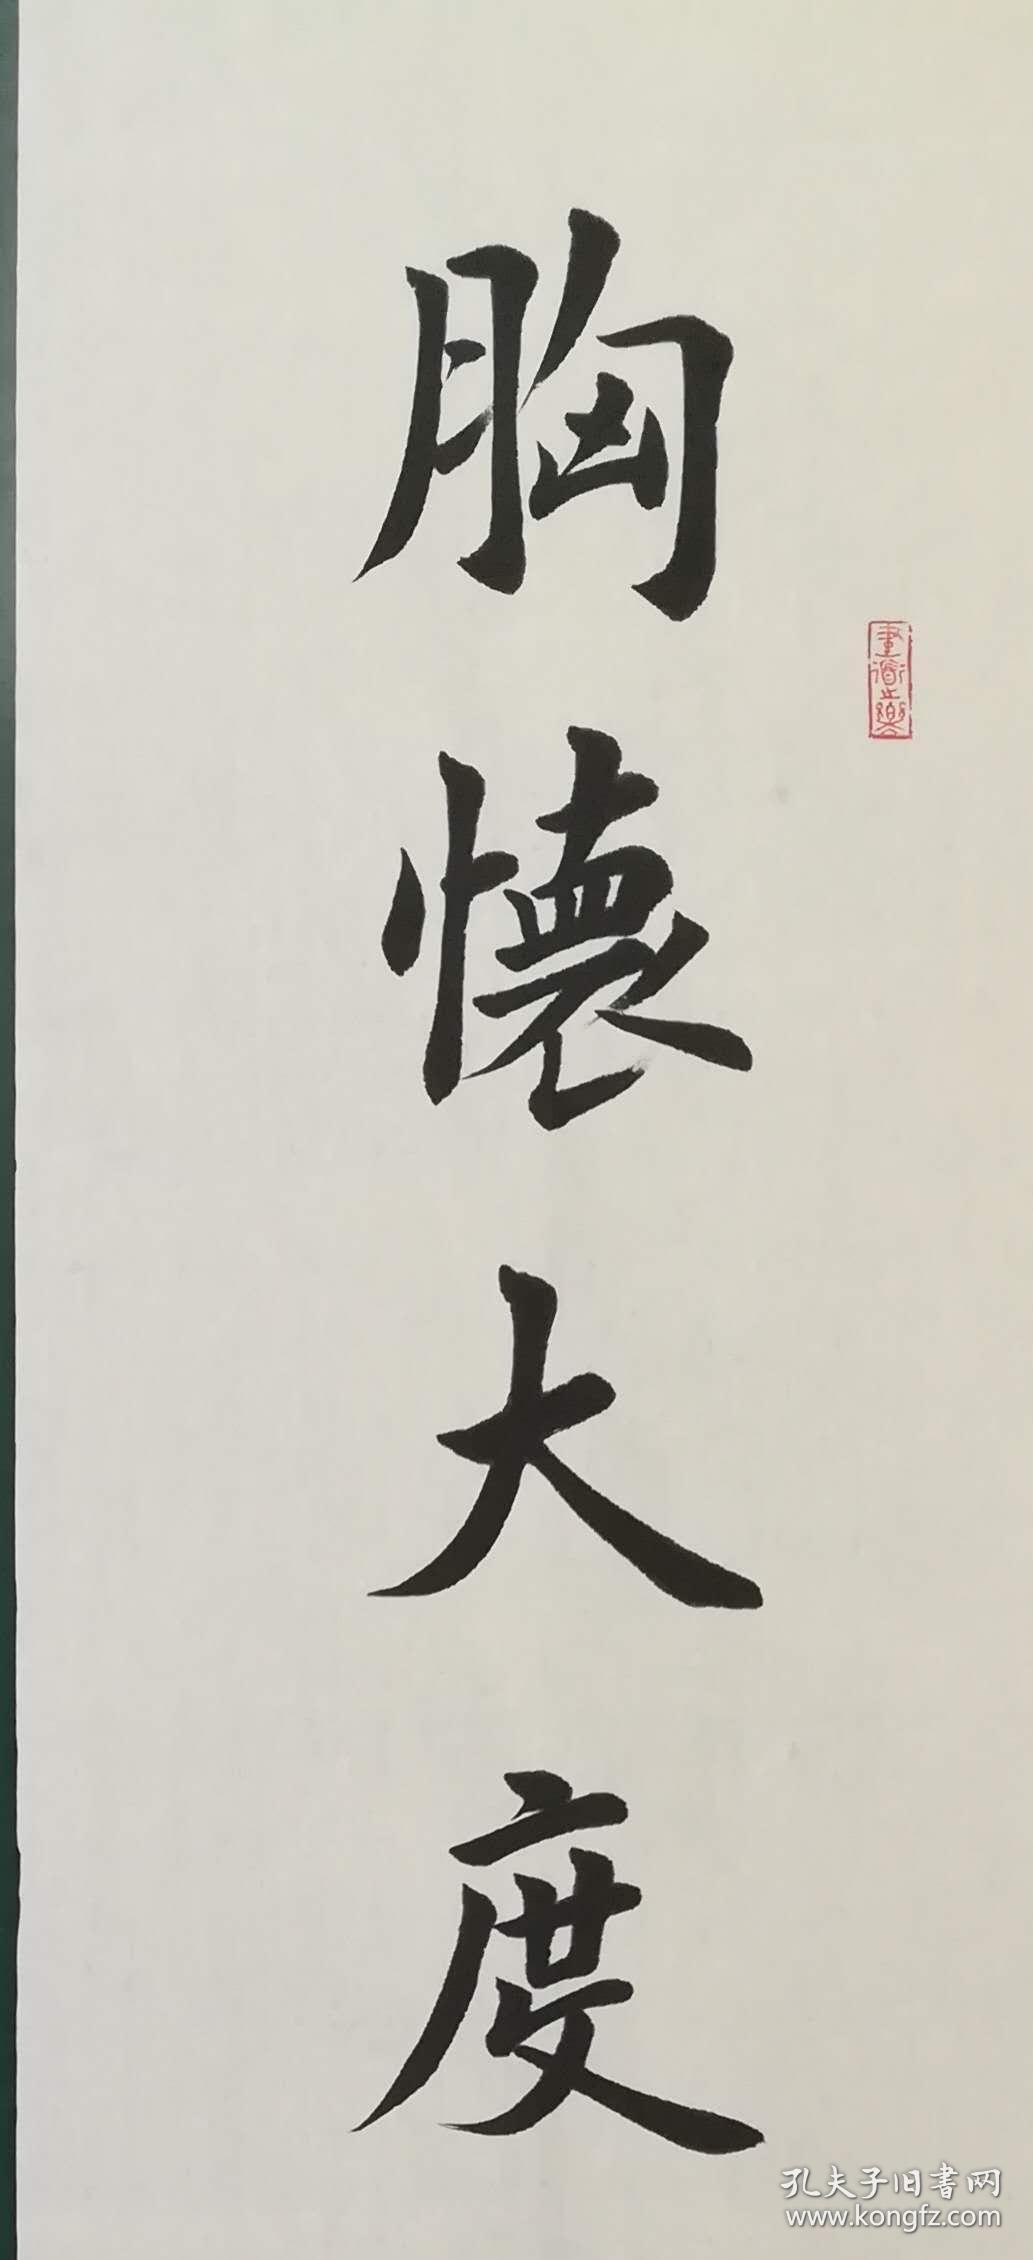 胸懷大度
孔夫子旧書网
www.kongfz.com